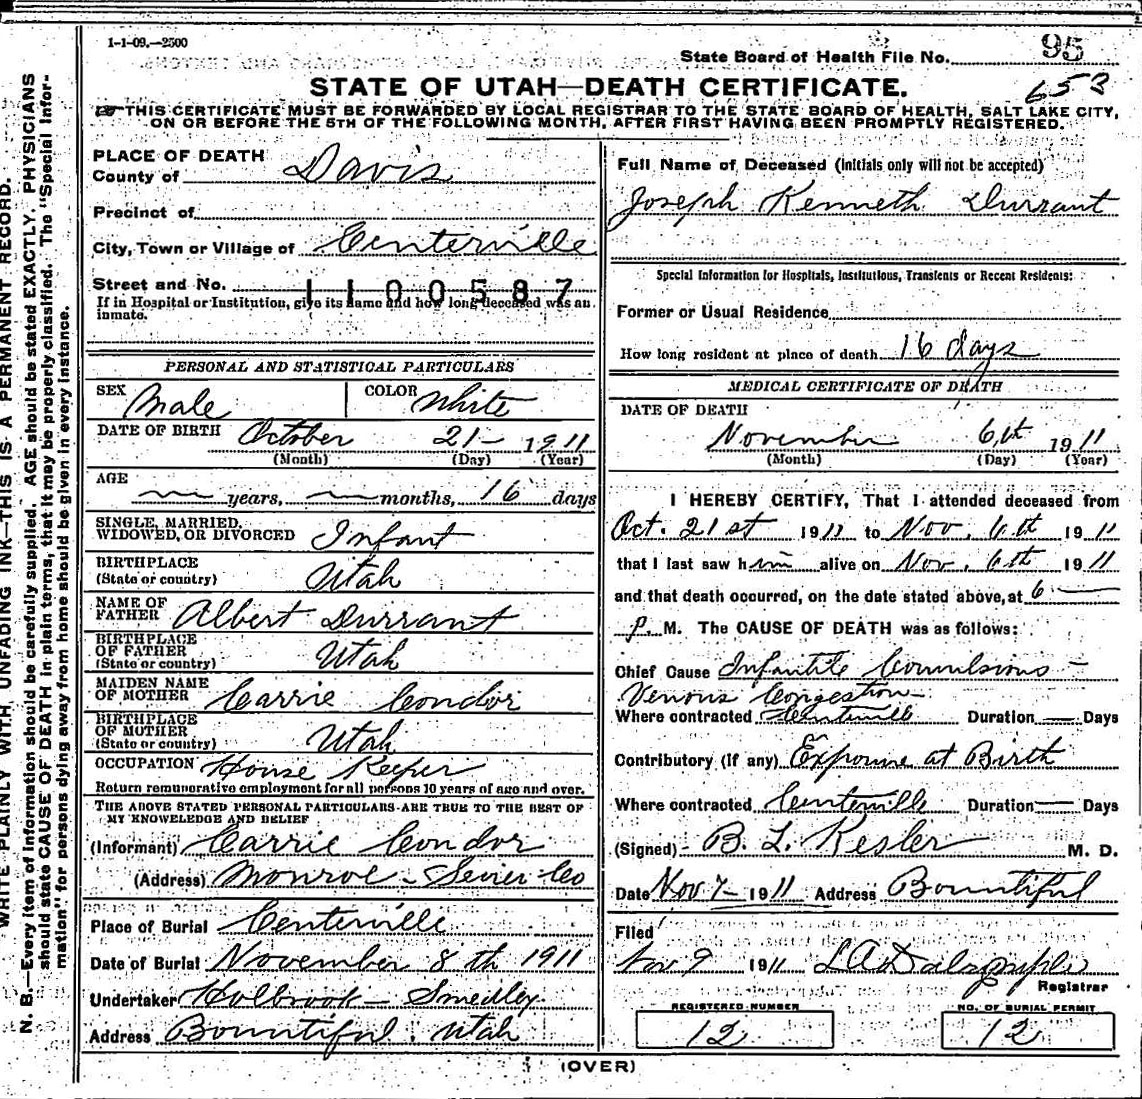 1-1-09.—2500
State Board of Health File No. 95
653
STATE OF UTAH—DEATH CERTIFICATE.
☞ THIS CERTIFICATE MUST BE FORWARDED BY LOCAL REGISTRAR TO THE STATE BOARD OF HEALTH, SALT LAKE CITY,
ON OR BEFORE THE 5TH OF THE FOLLOWING MONTH, AFTER FIRST HAVING BEEN PROMPTLY REGISTERED.
PLACE OF DEATH
County of Davis
Precinct of
City, Town or Village of Centerville
Street and No.
1100587
If in Hospital or Institution, give its name and how long deceased was an
inmate.
PERSONAL AND STATISTICAL PARTICULARS
SEX Male COLOR White
DATE OF BIRTH October 21- 1911
(Month) (Day) (Year)
AGE
— years, — months, 16 days
SINGLE, MARRIED,
WIDOWED, OR DIVORCED Infant
BIRTHPLACE
(State or country) Utah
NAME OF
FATHER Albert Durrant
BIRTHPLACE
OF FATHER
(State or country) Utah
MAIDEN NAME
OF MOTHER Carrie Condor
BIRTHPLACE
OF MOTHER
(State or country) Utah
OCCUPATION House Keeper
Return remunerative employment for all persons 10 years of age and over.
THE ABOVE STATED PERSONAL PARTICULARS ARE TRUE TO THE BEST OF
MY KNOWLEDGE AND BELIEF
(Informant) Carrie Condor
(Address) Monroe - Sevier Co
Place of Burial Centerville
Date of Burial November 8th 1911
Undertaker Holbrook - Smedley
Address Bountiful, Utah
Full Name of Deceased (Initials only will not be accepted)
Joseph Kenneth Durrant
Special Information for Hospitals, Institutions, Transients or Recent Residents:
Former or Usual Residence
How long resident at place of death 16 days
MEDICAL CERTIFICATE OF DEATH
DATE OF DEATH
November 6th 1911
(Month) (Day) (Year)
I HEREBY CERTIFY, That I attended deceased from
Oct. 21st 1911 to Nov. 6th 1911
that I last saw him alive on Nov. 6th 1911
and that death occurred, on the date stated above, at 6 —
P. M. The CAUSE OF DEATH was as follows:
Chief Cause Infantile Convulsions -
Venous Congestion -
Where contracted Centerville Duration — Days
Contributory (If any) Exposure at Birth
Where contracted Centerville Duration — Days
(Signed) B. L. Kesler M. D.
Date Nov 7- 1911 Address Bountiful
Filed
Nov 9 1911 L A Dalrymple
Registrar
REGISTERED NUMBER
12
NO. OF BURIAL PERMIT
12
(OVER)
WRITE PLAINLY WITH UNFADING INK—THIS IS A PERMANENT RECORD.
N. B.—Every item of information should be carefully supplied. AGE should be stated EXACTLY. PHYSICIANS
should state CAUSE OF DEATH in plain terms, that it may be properly classified. The "Special Infor-
mation" for persons dying away from home should be given in every instance.